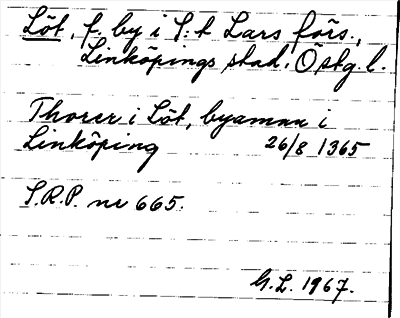 Löt, f. by i S:t Lars förs.,
Linköpings stad, Östg. l.
Thorer i Löt, byaman i
Linköping 26/8 1365
S.R.P. nr 665.
G.L. 1967.